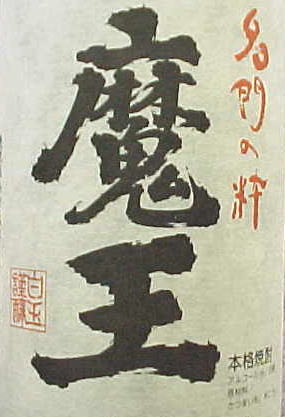 名門の粋
魔王
白玉
謹醸
本格焼酎